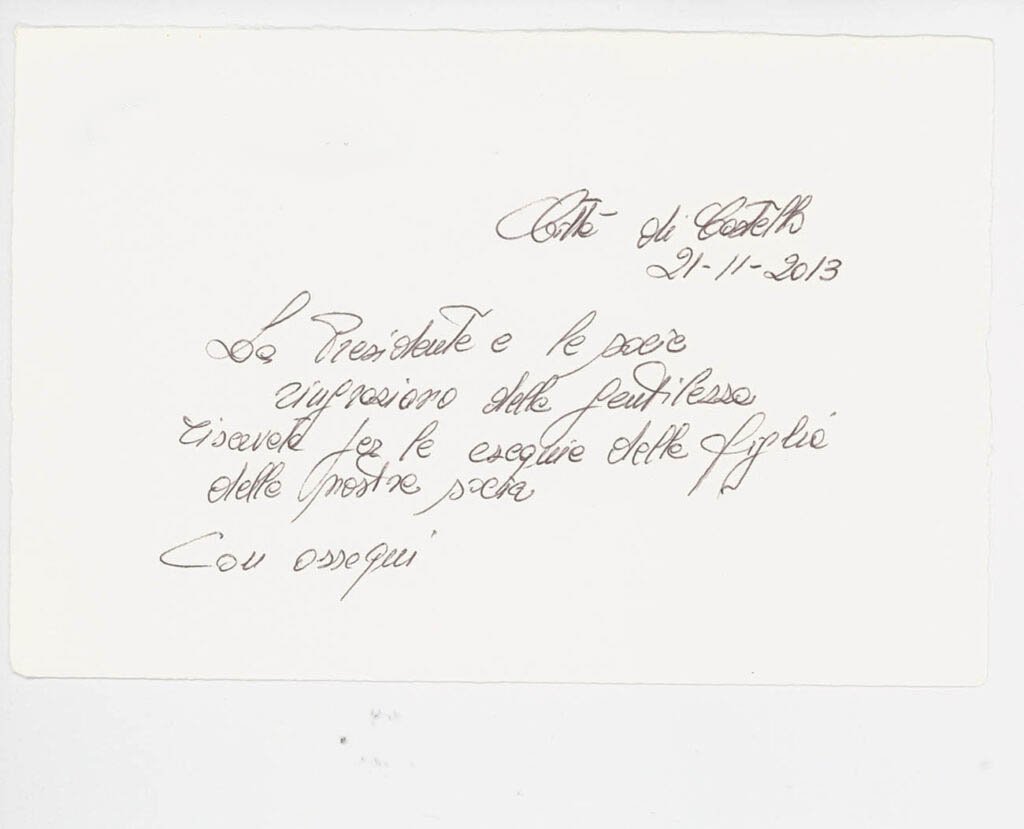 Città di Castello
21-11-2013
La Presidente e le socie
ringraziano della gentilezza
riservata per le esequie della figlia
della nostra socia
Con ossequi